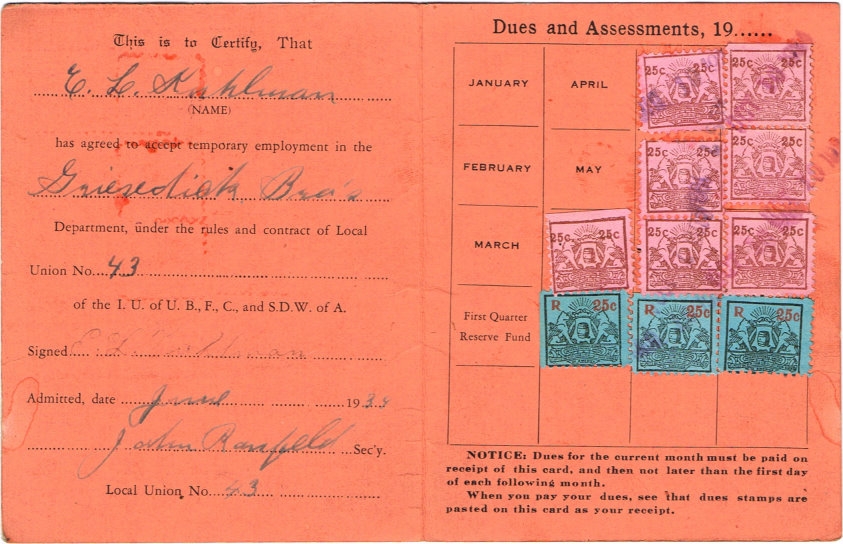 This is to Certify, That
E. L. Kuhlman
(NAME)
has agreed to accept temporary employment in the
Griesedick Bro's
Department, under the rules and contract of Local
Union No. 43
of the I. U. of U. B., F., C., and S.D.W. of A.
Signed
Admitted, date June 193
John Sec'y.
Local Union No. 43
Dues and Assessments, 19......
JANUARY APRIL 25c 25c 25c 25c
FEBRUARY MAY 25c 25c 25c 25c
MARCH 25c. 25c. 25c 25c 25c 25c
First Quarter
Reserve Fund
R 25c R 25c R 25c
NOTICE: Dues for the current month must be paid on
receipt of this card, and then not later than the first day
of each following month.
When you pay your dues, see that dues stamps are
pasted on this card as your receipt.